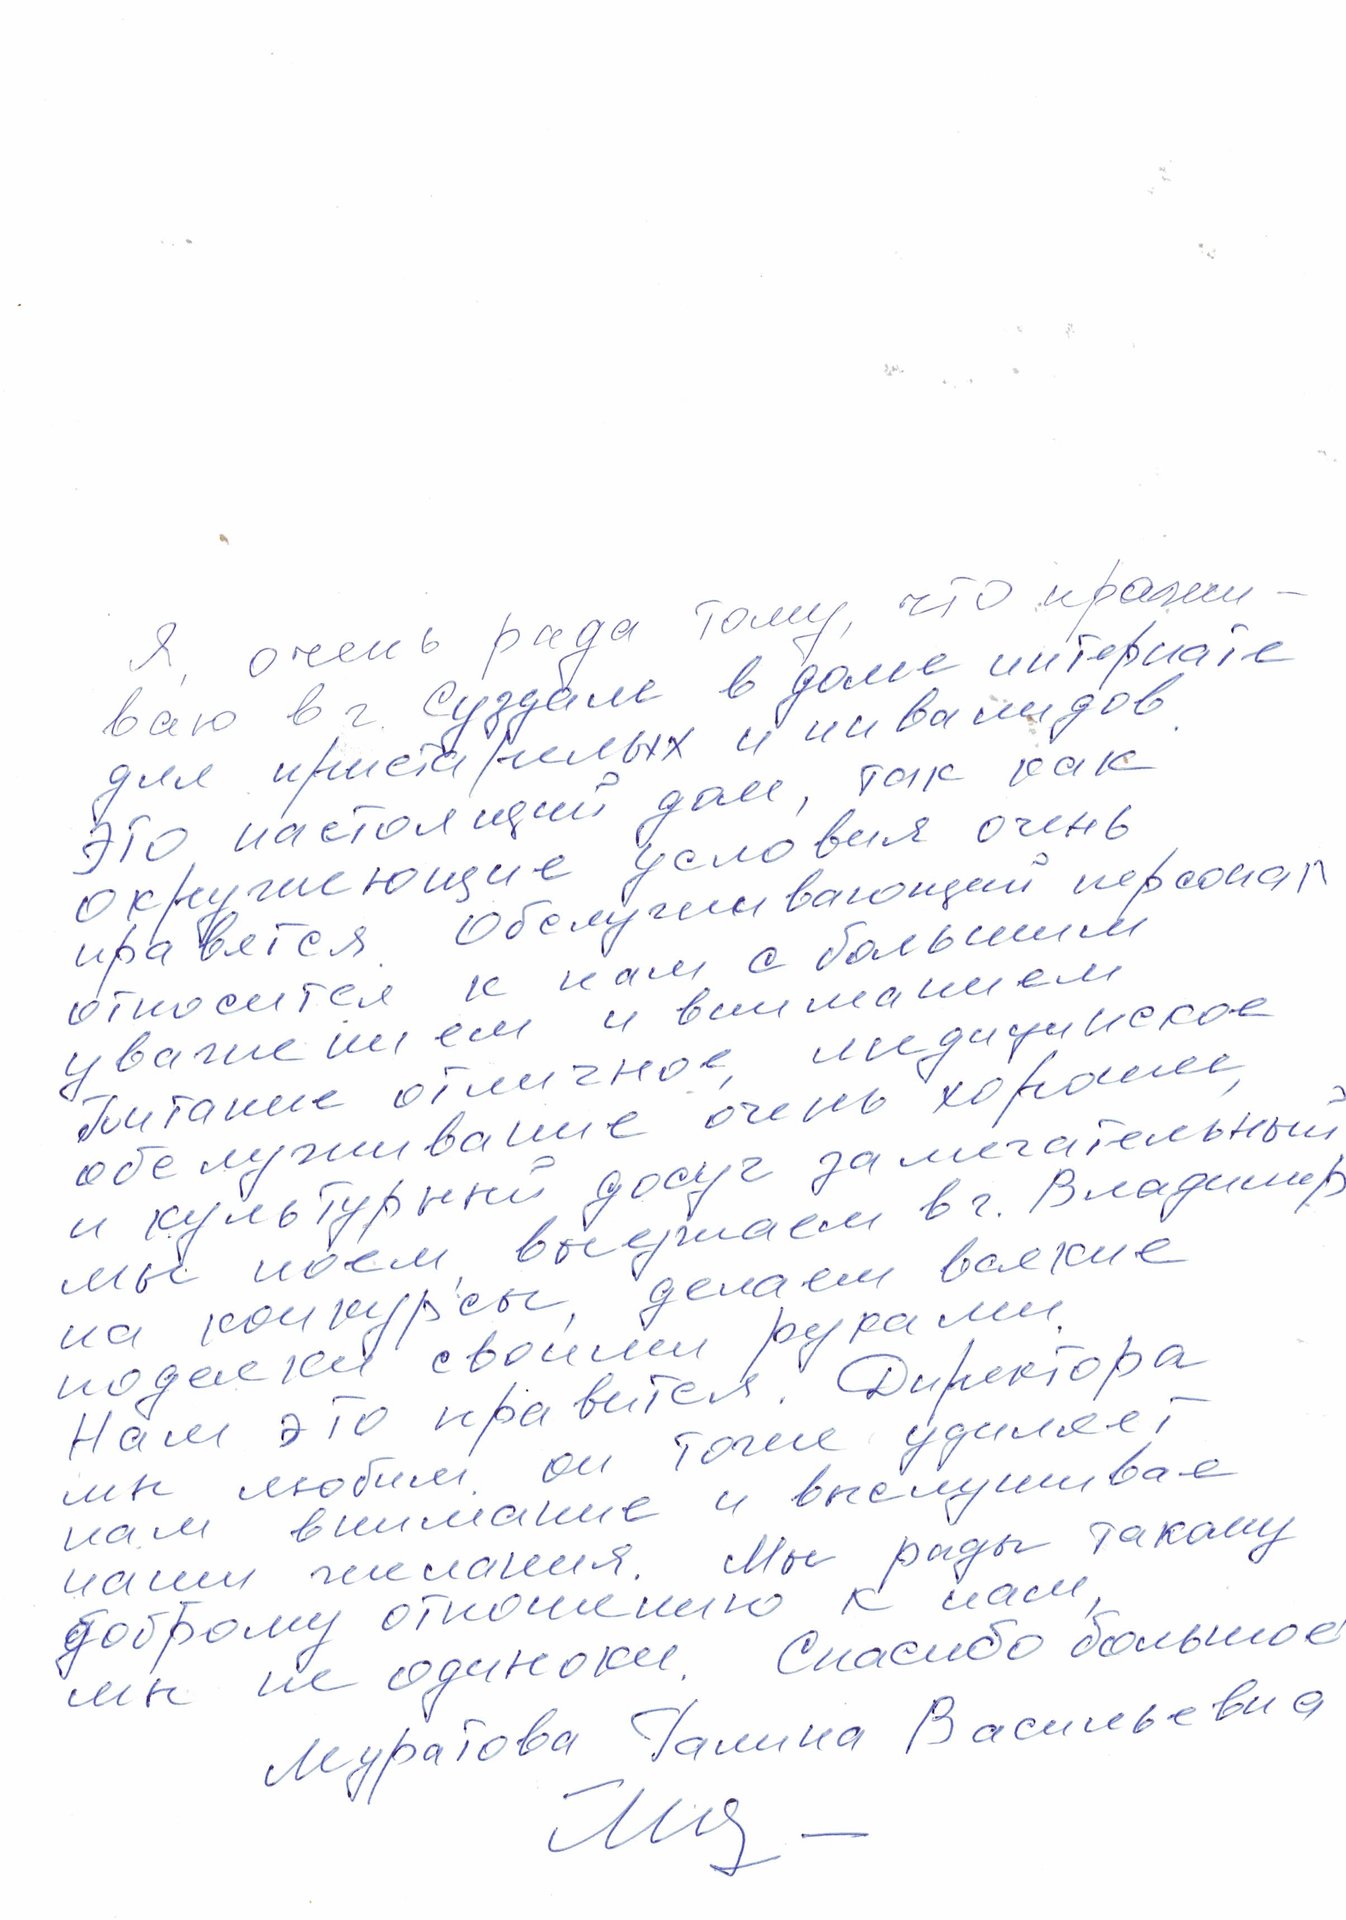 Я, очень рада тому, что прожи-
ваю в г. Суздале в доме интернате
для престарелых и инвалидов.
Это настоящий дом, так как
окружающие условия очень
нравятся. Обслуживающий персонал
относится к нам с большим
уважением и вниманием
Питание отличное, медицинское
обслуживание очень хорошее,
и культурный досуг замечательный
мы поем, выезжаем в г. Владимир
на конкурсы, делаем всякие
поделки своими руками.
Нам это нравится. Директора
мы любим, он тоже уделяет
нам внимание и выслушивае
наши желания. Мы рады такому
доброму отношению к нам,
мы не одиноки. Спасибо большое
Муратова Галина Васильевна